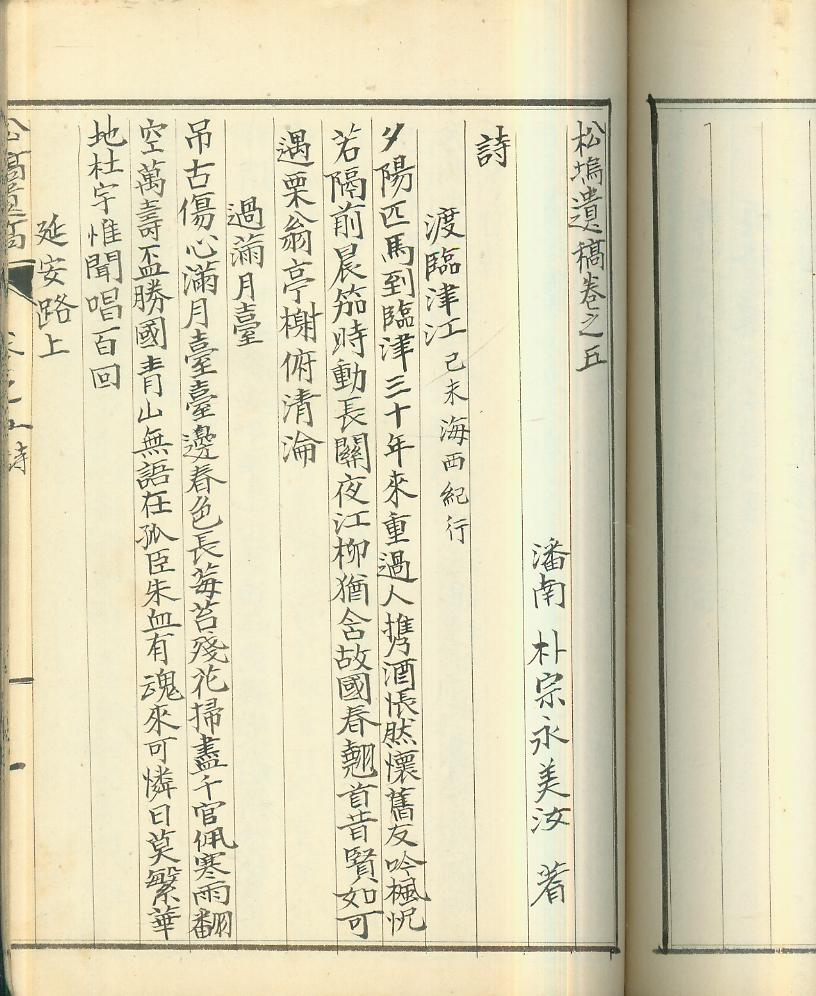 松塢遺稿卷之五
潘南 朴宗永美汝 著
詩
渡臨津江 己未海西紀行
夕陽匹馬到臨津三十年來重過人携酒悵然懷舊友吟楓怳
若隔前晨笳時動長關夜江柳猶含故國春翹首昔賢如可
遇栗翁亭榭俯清淪
過滿月臺
吊古傷心滿月臺臺邊春色長莓苔殘花掃盡千官佩寒雨翻
空萬壽盃勝國青山無語在孤臣朱血有魂來可憐日莫繁華
地杜宇惟聞唱百回
延安路上